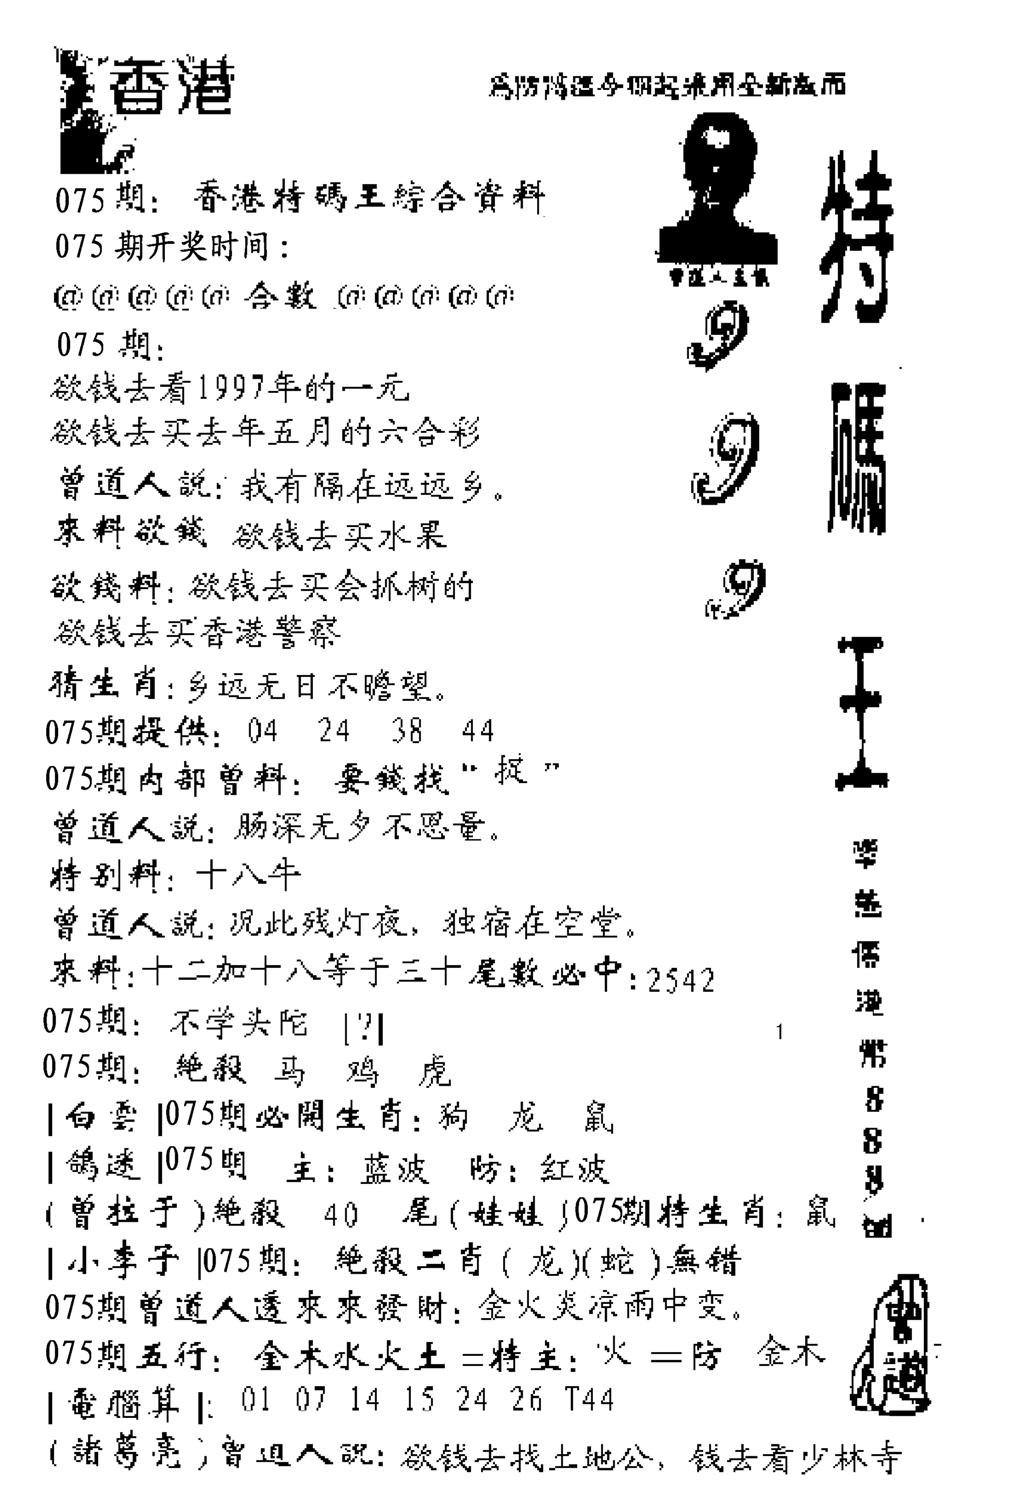 香港
075期：香港特碼王綜合資料
075期开奖时间：
@@@@@合數@@@@@
075期：
欲钱去看1997年的一元
欲钱去买去年五月的六合彩
曾道人説：我有隔在远远乡。
來料欲錢 欲钱去买水果
欲錢料：欲钱去买会抓树的
欲钱去买香港警察
猜生肖：乡远无日不瞻望。
075期提供：04 24 38 44
075期内部曾料：要錢找“捉”
曾道人説：肠深无夕不思量。
特别料：十八牛
曾道人説：况此残灯夜，独宿在空堂。
來料：十二加十八等于三十尾數必中：2542
075期：不学头陀 |?|
075期：絶殺 马 鸡 虎
|白雲|075期必開生肖：狗 龙 鼠
|鴿迷|075期 主：蓝波 防：红波
(曾拉于)絶殺 40 尾(娃娃)075期特生肖：鼠
|小李子|075期：絶殺二肖(龙)(蛇)無错
075期曾道人透來來發財：金火炎凉雨中变。
075期五行：金木水火土=特主：火=防 金木
|電腦算|：01 07 14 15 24 26 T44
(諸葛亮)曾道人説：欲钱去找土地公，钱去看少林寺
特碼王
999
1
888